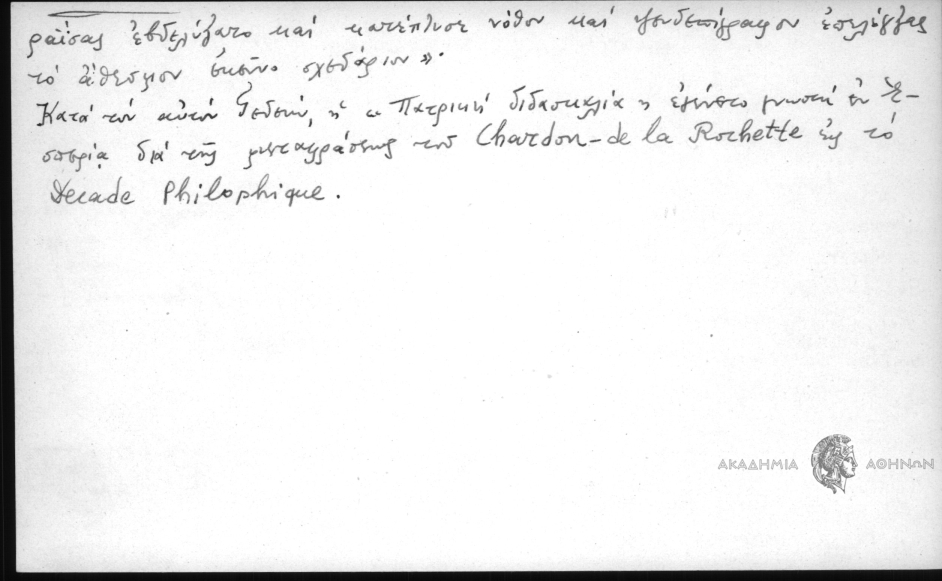 ραΐσας ἐβδελύξατο καί κατέπτυσε νόθον καί ψευδεπίγραφον ἐπιλέγξας
τό ἀθέσμιον ἐκεῖνο σχεδάριον».
Κατά τόν αὐτόν Γεδεών, ἡ «Πατρική διδασκαλία» ἐγένετο γνωστή ἐν Ἑ-
σπερίᾳ διά τῆς μεταφράσεως τοῦ Chardon-de la Rochette εἰς τό
Decade Philophique.
ΑΚΑΔΗΜΙΑ ΑΘΗΝΩΝ